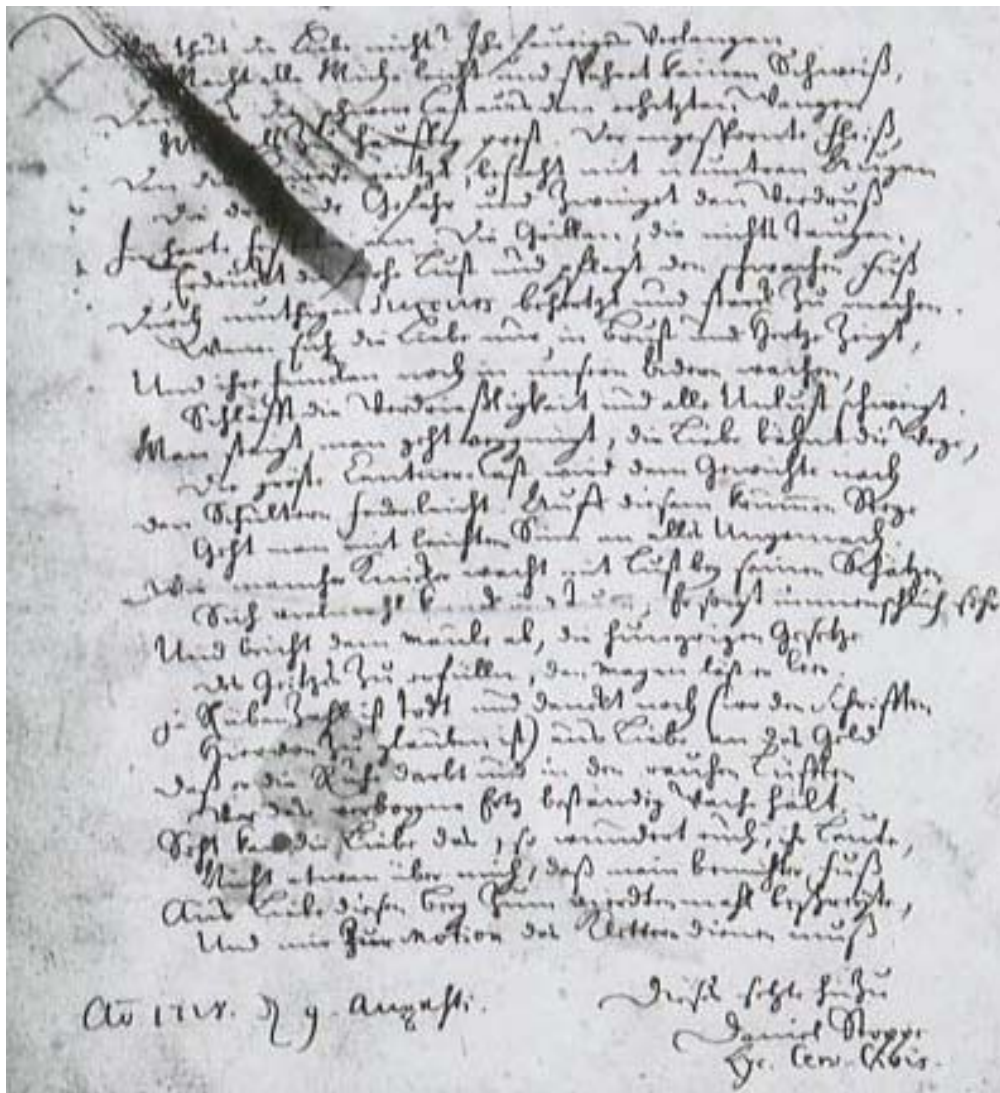 thut die Liebe nicht? Ihr feuriges Verlangen
Macht alle Mühe leicht und spahret keinen Schweiß,
Der schwere Last aus den erhitzten Wangen
prest. Der angespornte Fleiß,
Von der reitzt, besieht mit muntren Augen
Die Gefahr und zwinget den Verdruß
an. Die Grillen, die nichts taugen,
Erdrückt die Lust und pflegt den schwachen Fuß
Durch muthiges behertzt und starck zu machen.
Wenn sich die Liebe nur in Brust und Hertze zeigt,
Und ihre Funcken noch in unsern Adern wachen,
Schläfft die Verdrießligkeit und alle Unlust schweigt.
Man steigt, man geht vergnügt, die Liebe bähnt die Wege,
Die gröste Centner-Last wird dem Gewichte nach
den Schultern federleicht. Auff diesem krummen Stege
Geht man mit leichten Sinn an alles Ungemach.
Wie mancher wacht mit Lust bey seinen Schätzen
Sich, Er sorgt unmenschlich sehr
Und bricht dem Maule ab, die hungrigen Gesetze
des Geitzes zu erfüllen, den Magen läst er leer.
ja Rübenzahl ist todt und denckt noch (wo den Schrifften
hiervon zu glauben ist) aus Liebe an das Geld
daß er die Ruhe darbt und in den rauhen Lüfften
Vor das verborgne Ertz beständig Wache hält.
Seht kan die Liebe das, so wundert euch, ihr Leute,
Nicht etwan über mich, daß mein bemühter Fuß
Aus Liebe diesen Berg zum vierdtenmahl beschreite,
Und mir zur Motion das Klettern dienen muß
Ao 1728. d 9. Augusti.
Dieses setzte hinzu
Daniel Stoppe
Cerv. Civis.